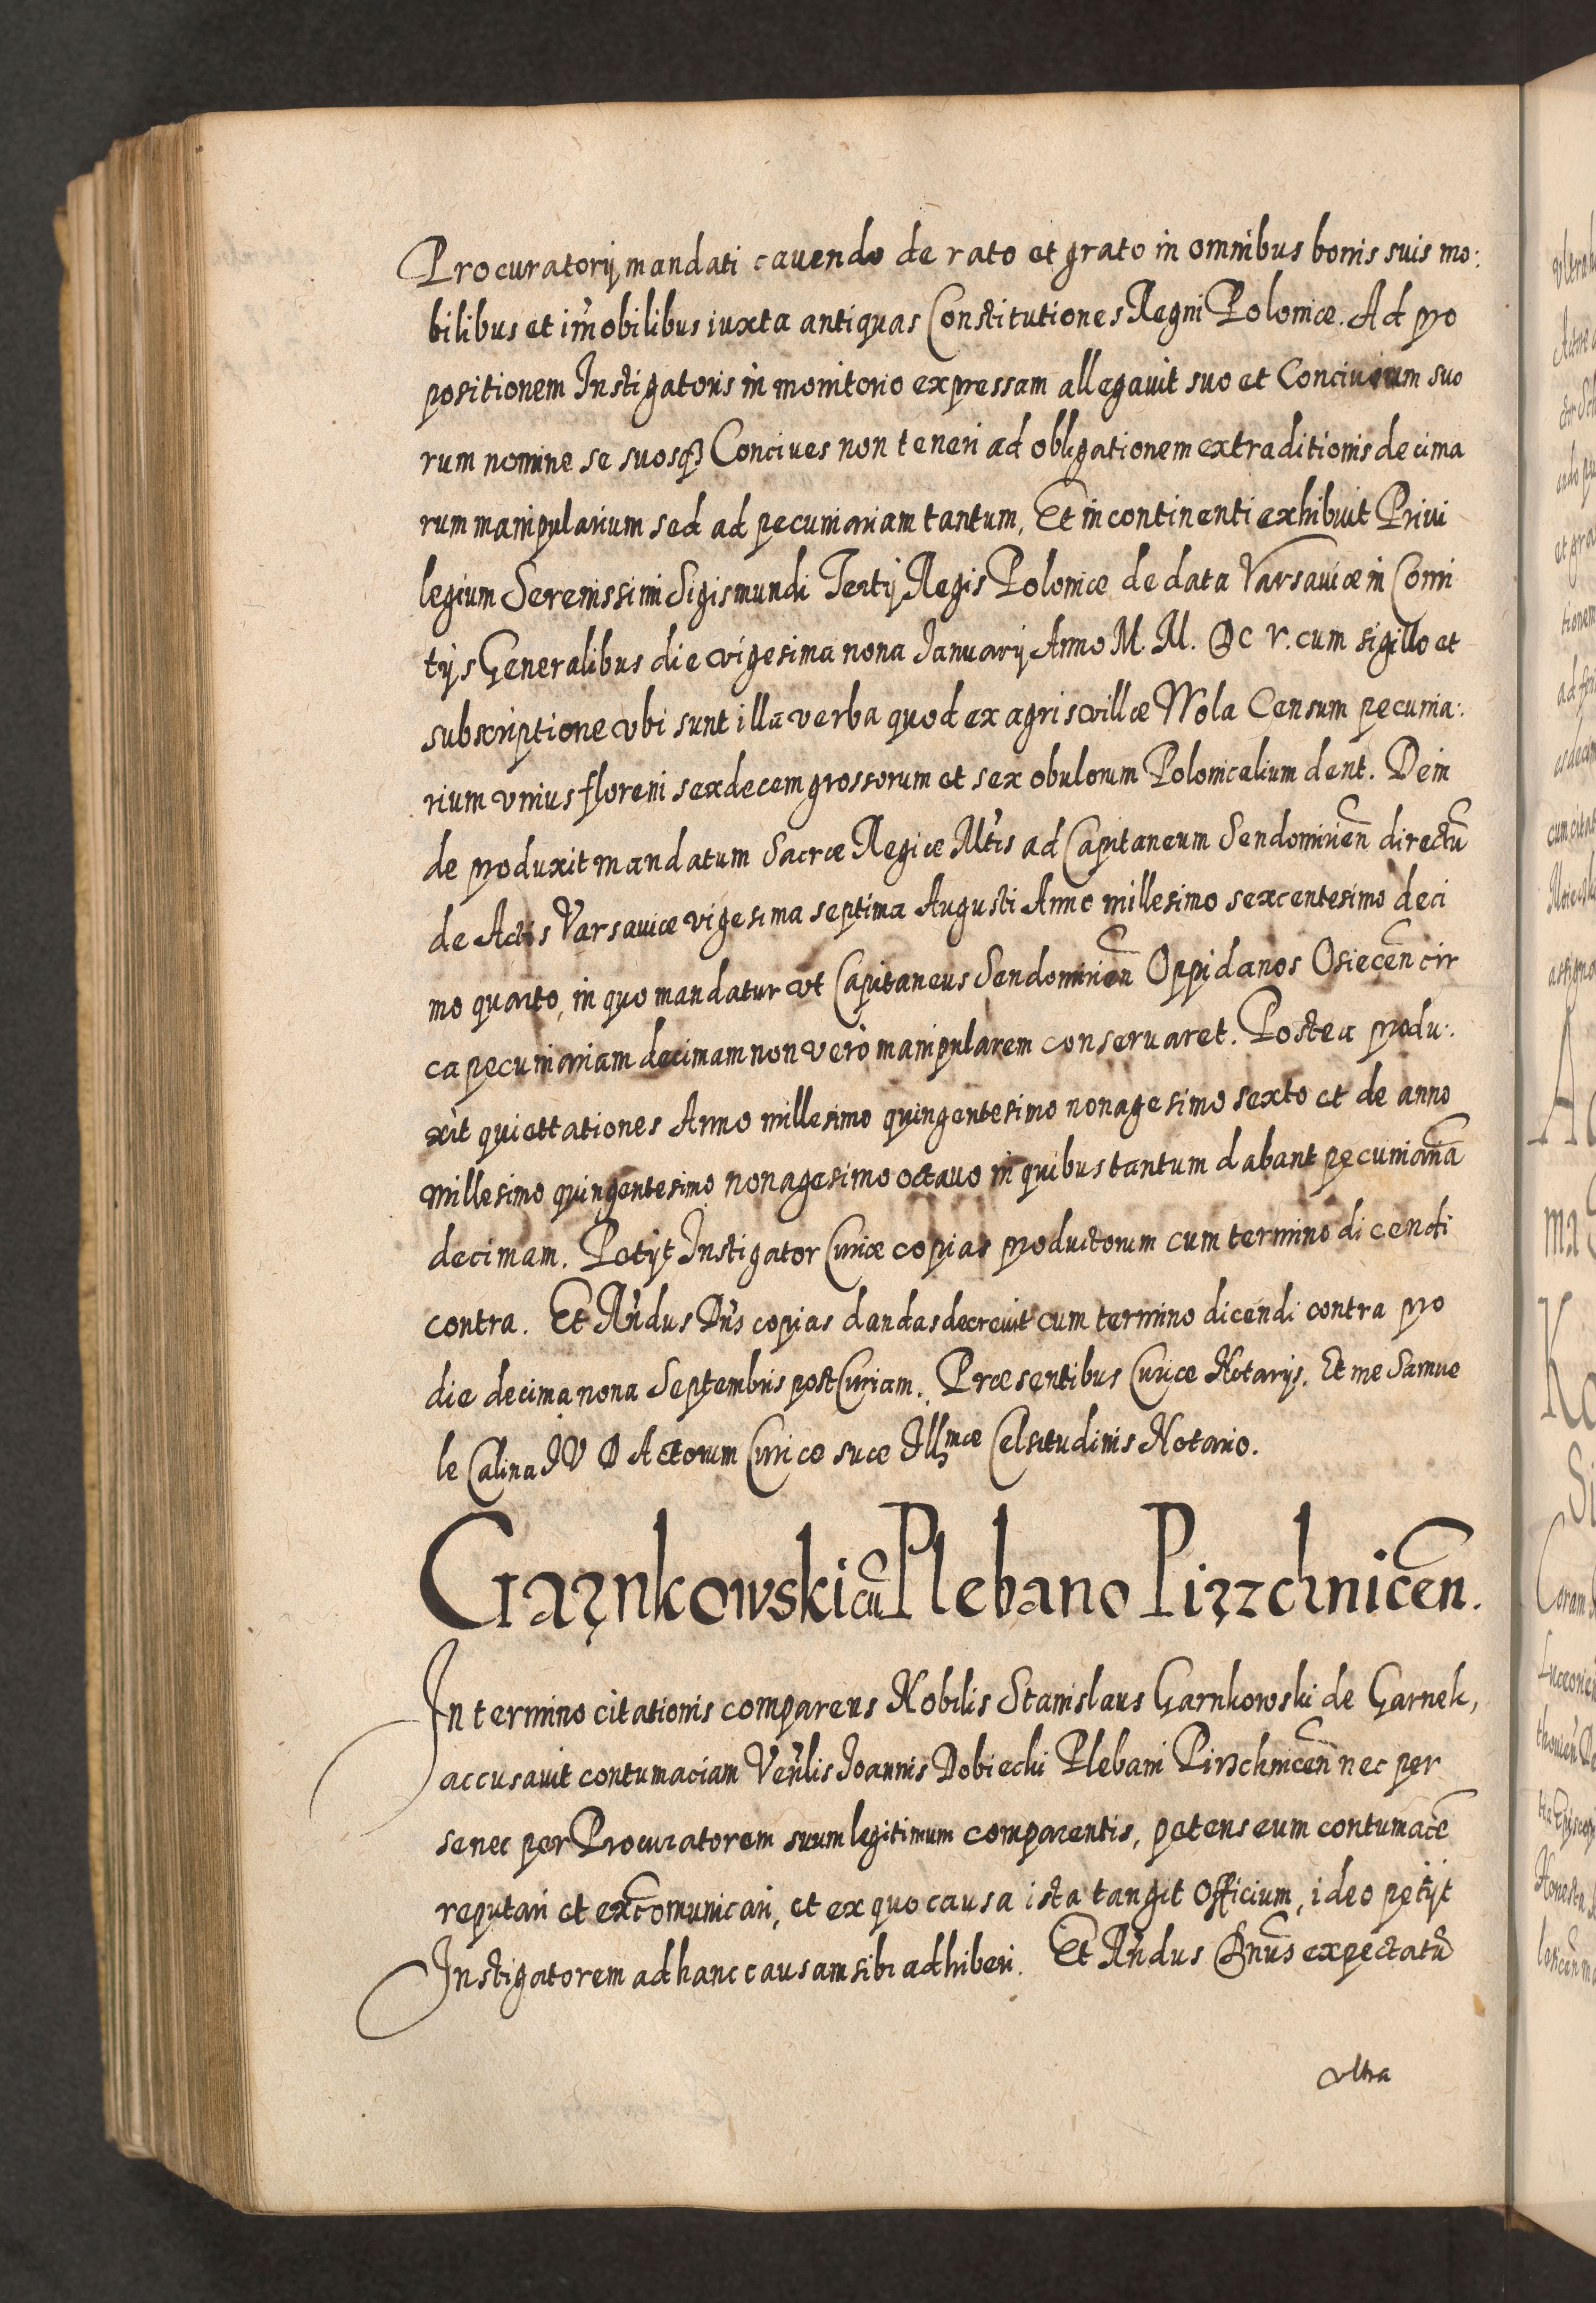 Procuratorij mandati cavendo de rato et grato in omnibus bonis suis mo:
bilibus et im̃obilibus iuxta antiquas Constitutiones Regni Poloniæ. Ad pro
positionem Instigatoris in monitorio expressam allegavit suo et Concivium suo
rum nomine se suosq₃ Concives non teneri ad obligationem extraditionis decima
rum manipularium sed ad pecuniariam tantum, Et incontinenti exhibuit Privi
legium Serenissimi Sigismundi Tertij Regis Poloniæ de data Varsaviæ in Comi
tijs Generalibus die vigesima nona Januarij Anno M. M. DC V. cum sigillo et
subscriptione vbi sunt illa verba quod ex agris villæ Wola Censum pecunia:
rium vnius floreni sexdecem grossorum et sex obulorum Polonicalium dent. Dein
de produxit mandatum Sacræ Regiæ Mtis ad Capitaneum Sendomirień directũ
de Actis Varsaviæ vigesima septima Augusti Anno millesimo sexcentesimo deci
mo quarto, in quo mandatur vt Capitaneus Sendomirień Oppidanos Osieceń cir
ca pecuniariam decimam non verò manipularem conservaret. Postea produ:
xit quiettationes Anno millesimo quingentesimo nonagesimo sexto et de anno
millesimo quingentesimo nonagesimo octavo in quibus tantum dabant pecuniariã
decimam. Petijt Instigator Curiæ copias productorum cum termino dicendi
contra. Et Rñdus Dñs copias dandas decrevit cum termino dicendi contra pro
die decima nona Septembris post Curiam. Præsentibus Curiæ Notarijs. Et me Samue
le Calina IV D Actorum Curiæ suæ Illmæ Celsitudinis Notario.
Garnkowski cũ Plebano Pirzchniceñ.
In termino citationis comparens Nobilis Stanislaus Garnkowski de Garnek,
accusavit contumaciam Veñlis Joannis Dobiecki Plebani Pirzchniceñ nec per
se nec per Procuratorem suum legitimum comparentis, petens eum contumacẽ
reputari et excõmunicari, et ex quo causa ista tangit Officium, ideo petijt
Instigatorem ad hanc causam sibi adhiberi. Et Rñdus Dnũs expectatũ
vltra